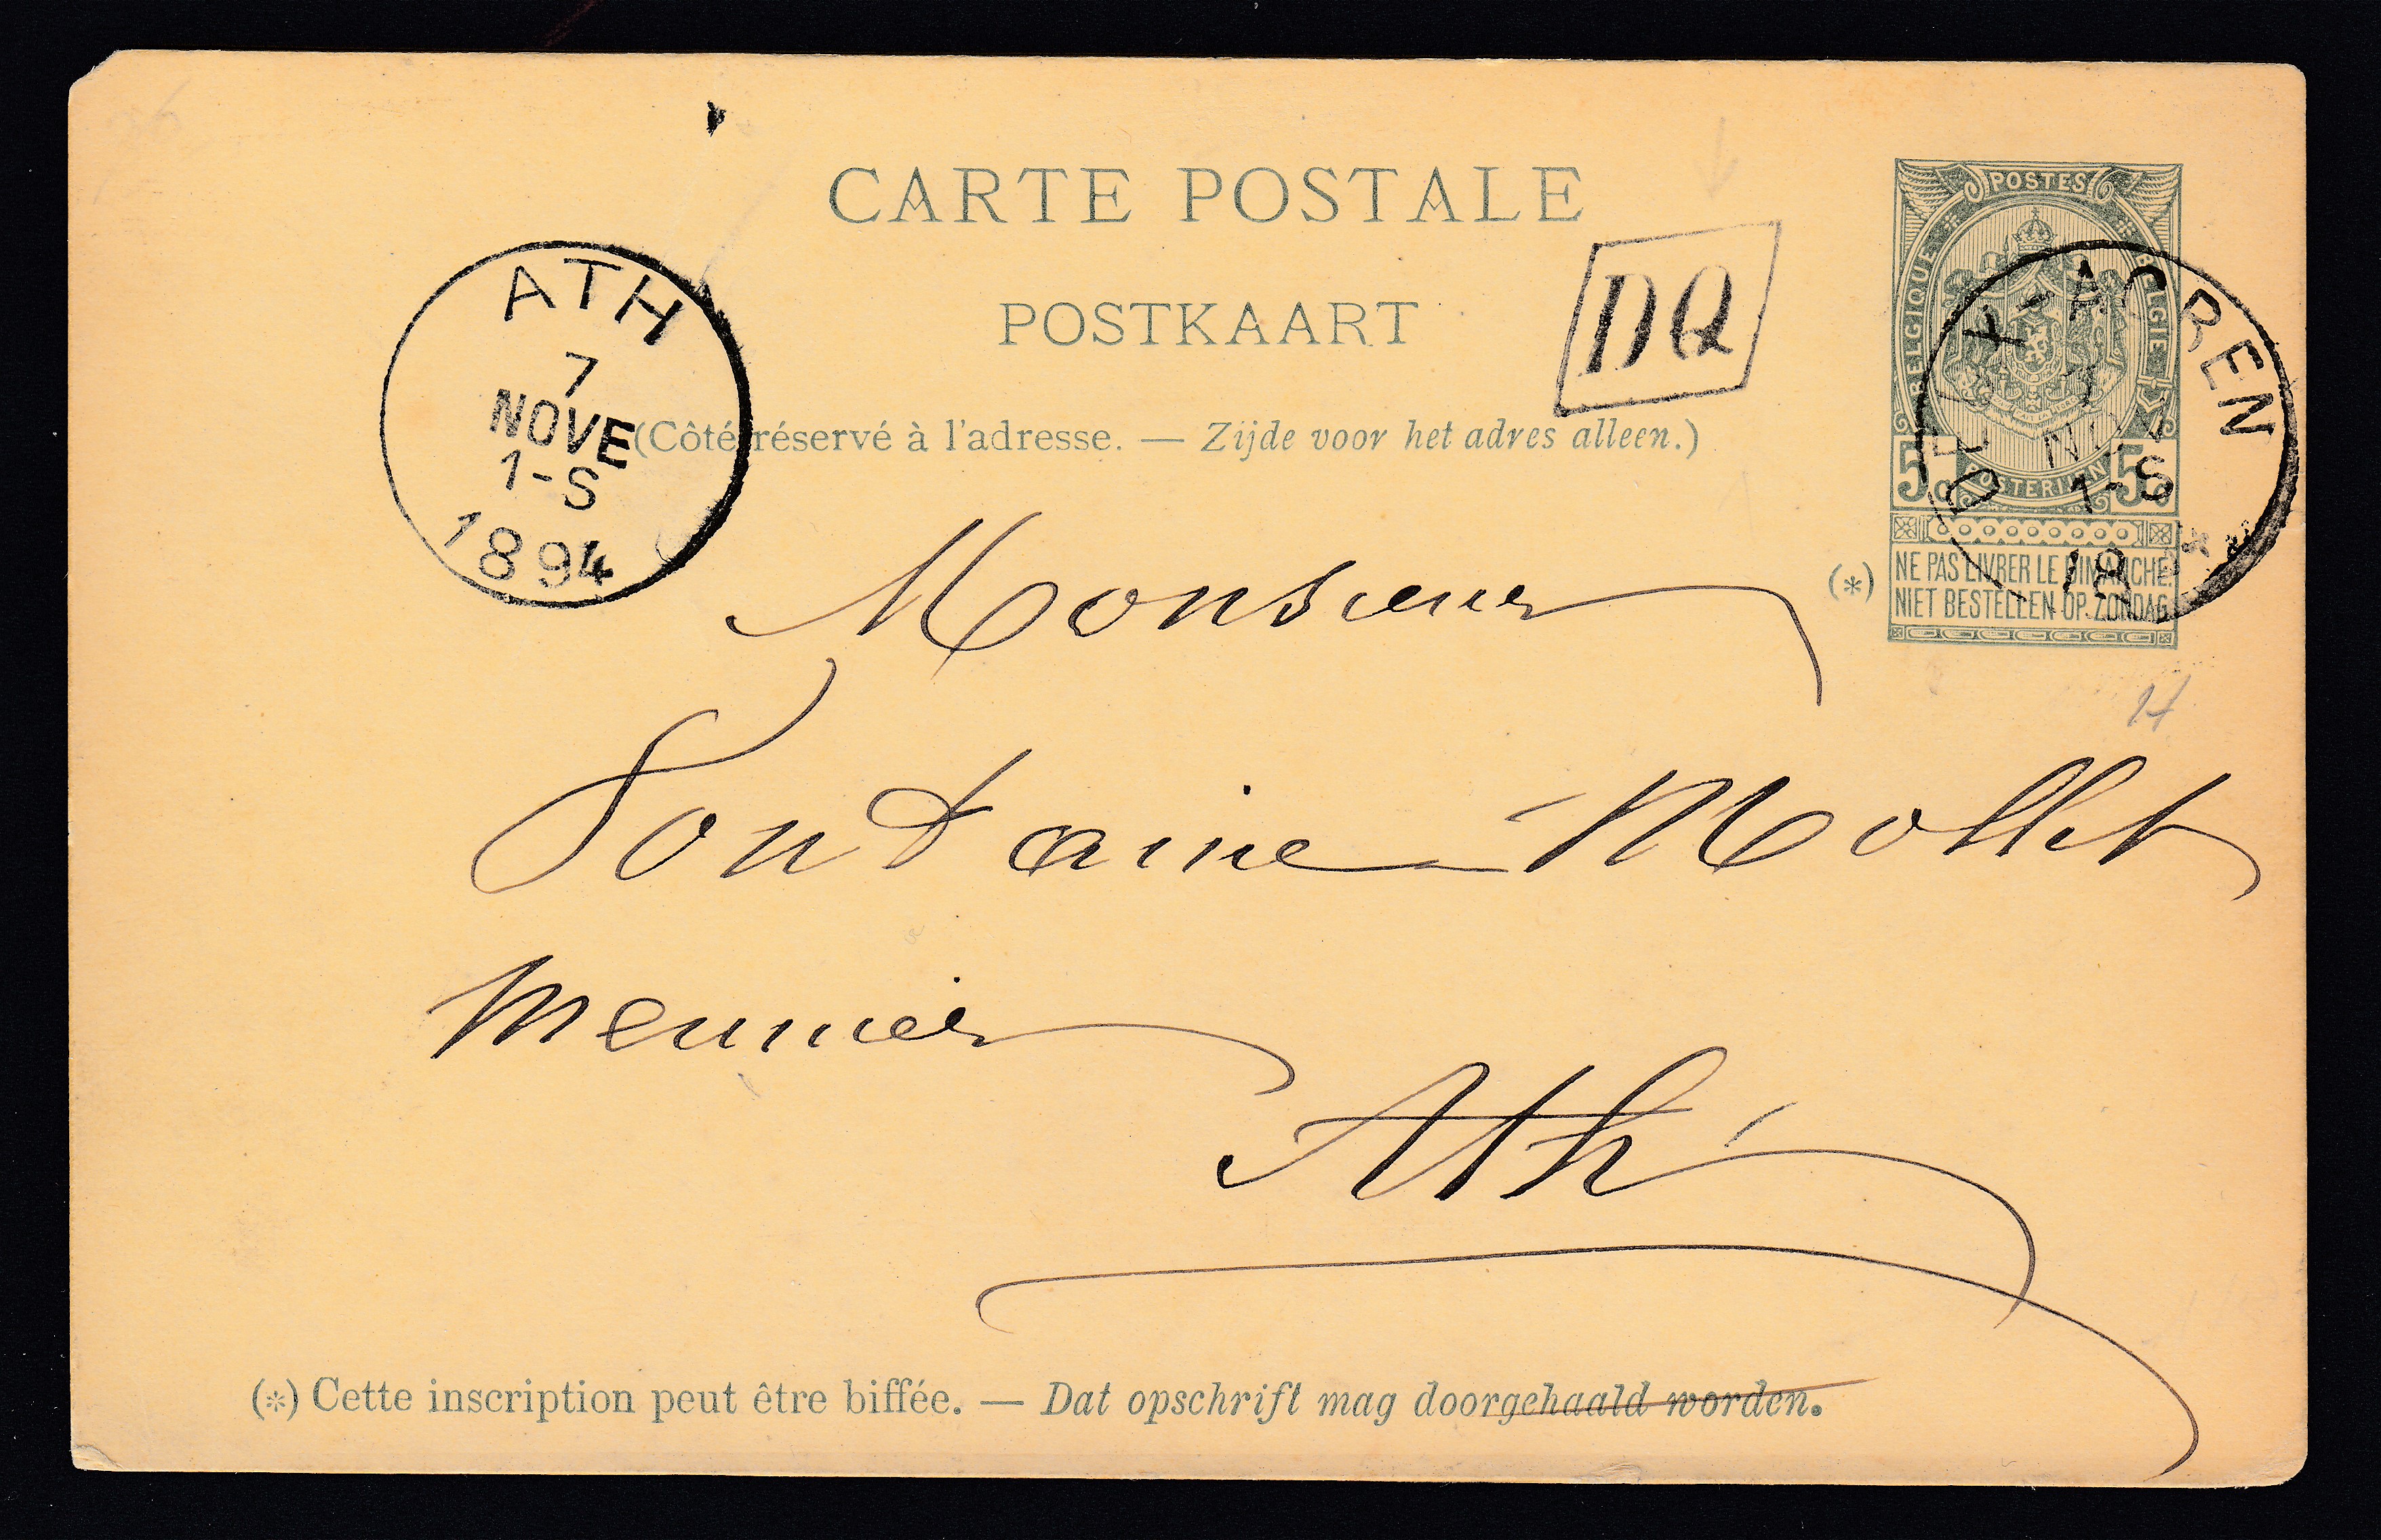 CARTE POSTALE
POSTKAART
DQ
(Côté réservé à l'adresse. — Zijde voor het adres alleen.)
ATH
7
NOVE
1-S
1894
POSTES
BELGIQUE
BELGIË
POSTERIJEN
5c
5c
-ACREN
7
1-S
18
(*)
NE PAS LIVRER LE DIMANCHE
NIET BESTELLEN OP ZONDAG
Monsieur
Fontaine-Mollet
Meunier
Ath
(*) Cette inscription peut être biffée. — Dat opschrift mag doorgehaald worden.